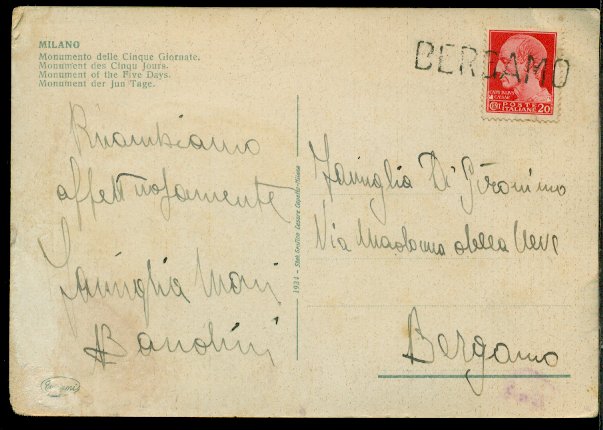 MILANO
Monumento delle Cinque Giornate.
Monument des Cinqu Jours.
Monument of the Five Days.
Monument der Jun Tage.
BERGAMO
POSTE
ITALIANE
20
Ricambiamo
affettuosamente
Famiglia Mari
Bandini
1934 - Stab. Grafico Cesare Capello - Milano
Famiglia Di Geronimo
Via Madonna della Neve
Bergamo